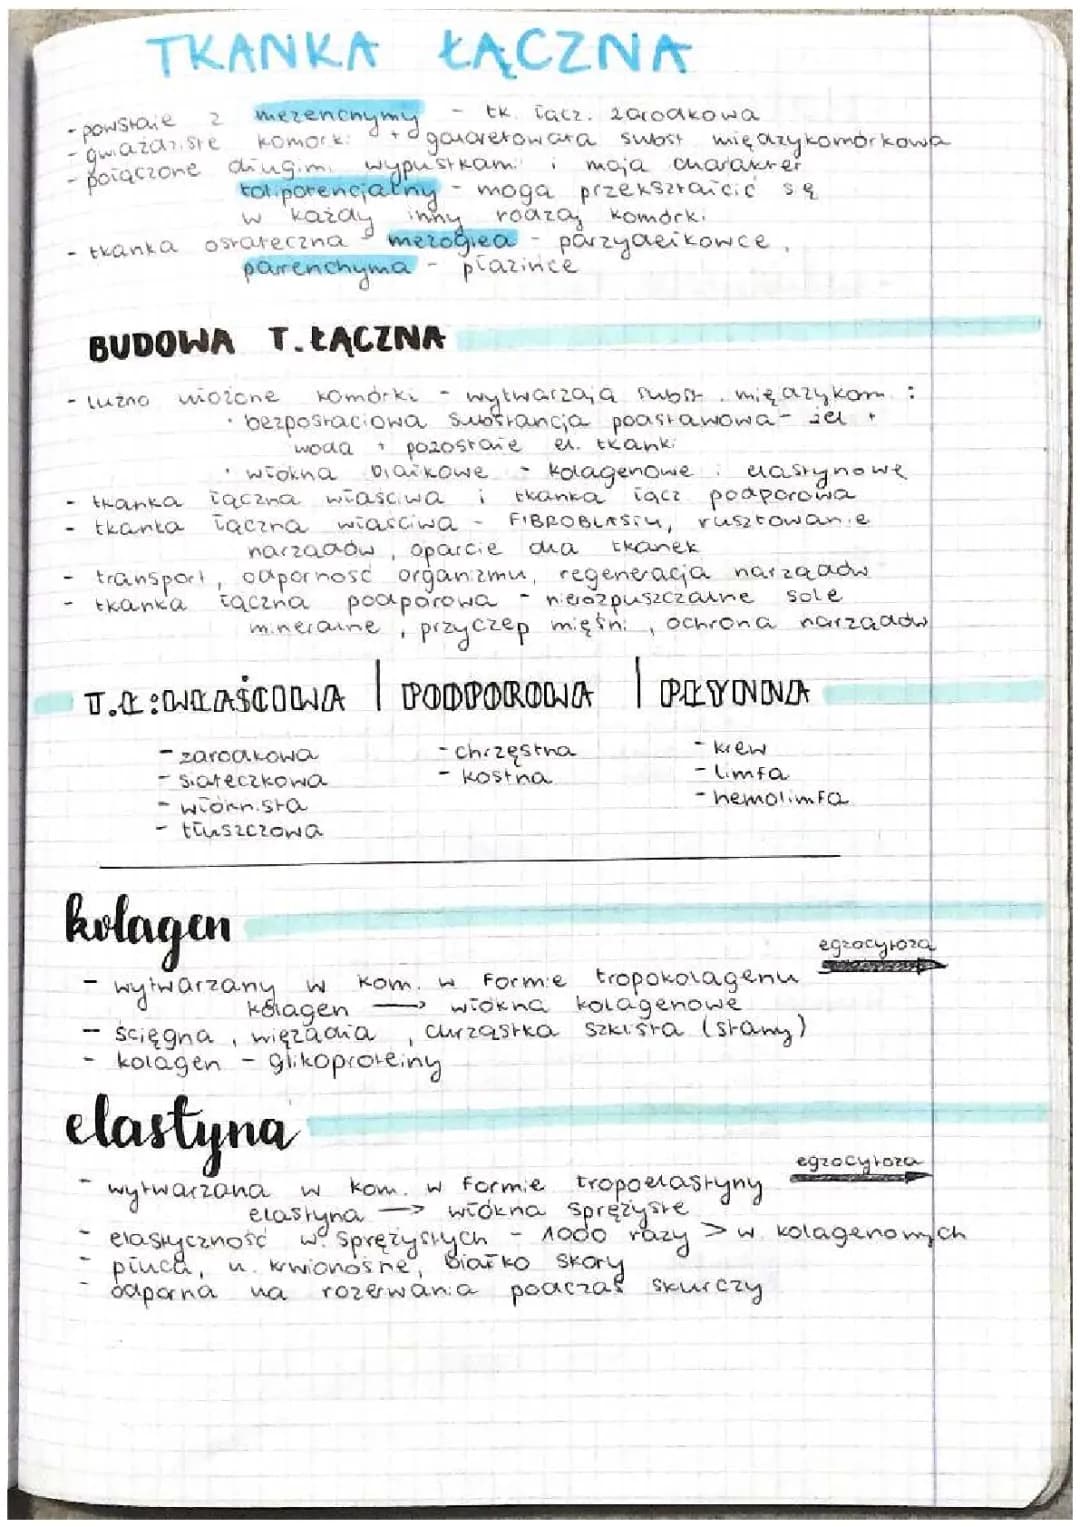 TKANKA ŁĄCZNA
- powstaje z mezenchymy - tk. łącz. zarodkowa
- gwiaździste komórki + galaretowata subst międzykomórkowa
- połączone długimi wypustkami i mają charakter
totipotencjalny - mogą przekształcić się
w każdy inny rodzaj komórki
- tkanka ostateczna - mezoglea - parzydełkowce,
parenchyma - płazińce
BUDOWA T. ŁĄCZNA
- luźno ułożone komórki - wytwarzają subst. międzykom:
· bezpostaciowa substancja podstawowa - żel +
woda + pozostałe el. tkanki
· włókna białkowe - kolagenowe i elastynowe
- tkanka łączna właściwa i tkanka łącz podporowa
- tkanka łączna właściwa - FIBROBLASTY, rusztowanie
narządów, oparcie dla tkanek
- transport, odporność organizmu, regeneracja narządów
- tkanka łączna podporowa - nierozpuszczalne sole
mineralne, przyczep mięśni, ochrona narządów
T.Ł: WŁAŚCIWA | PODPOROWA | PŁYNNA
- zarodkowa - chrzęstna - krew
- siateczkowa - kostna - limfa
- włóknista - hemolimfa
- tłuszczowa
kolagen
- wytwarzany w kom. w formie tropokolagenu egzocytoza
kolagen → włókna kolagenowe
- ścięgna, więzadła, chrząstka szklista (stawy)
- kolagen - glikoproteiny
elastyna
- wytwarzana w kom. w formie tropoelastyny egzocytoza
elastyna → włókna sprężyste
- elastyczność w. sprężystych - 1000 razy > w. kolagenowych
- płuca, n. krwionośne, białko skóry
- odporna na rozerwania podczas skurczy